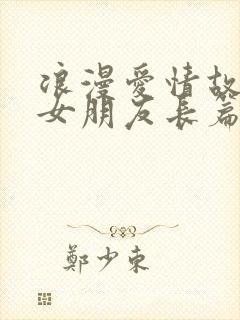 浪漫愛情故
女朋友長篇
鄭少東